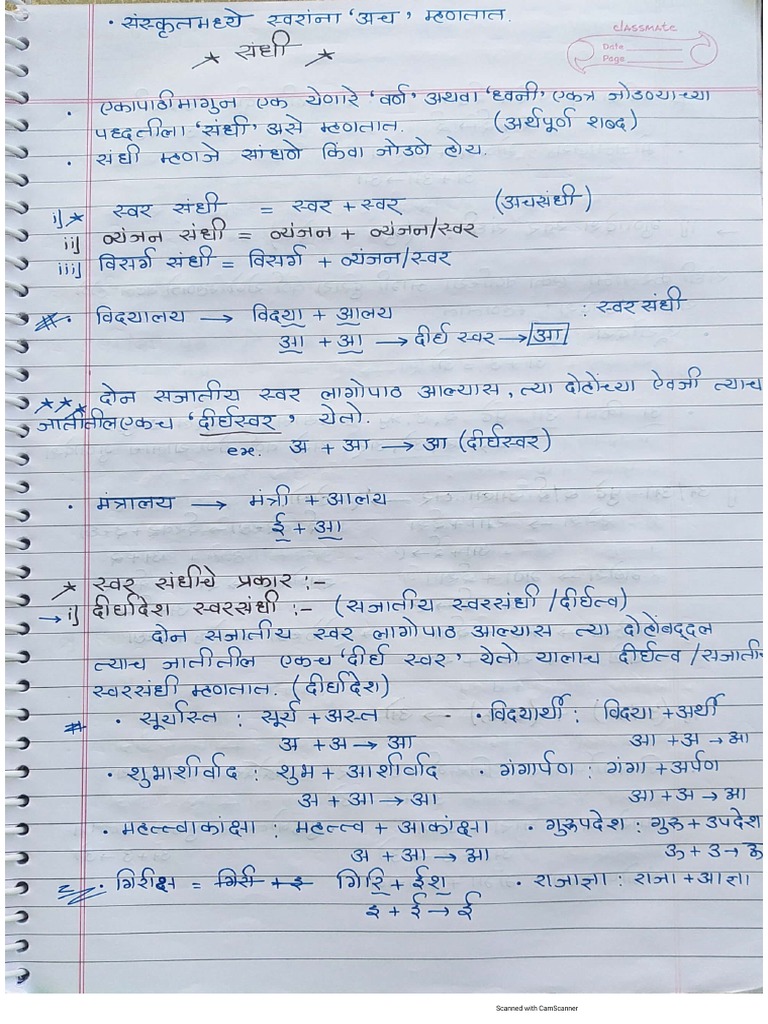 · संस्कृतमध्ये स्वरांना 'अच' म्हणतात.
classmate
Date
Page
★ संधी ★
· एकापाठीमागुन एक येणारे 'वर्ण' अथवा 'ध्वनी' एकत्र जोडण्याच्या
पध्दतीला 'संधी' असे म्हणतात. (अर्थपूर्ण शब्द)
· संधी म्हणजे सांधणे किंवा जोडणे होय.
i] ★ स्वर संधी = स्वर + स्वर (अचसंधी)
ii] व्यंजन संधी = व्यंजन + व्यंजन/स्वर
iii] विसर्ग संधी = विसर्ग + व्यंजन/स्वर
# · विद्यालय → विद्या + आलय : स्वर संधी
आ + आ → दीर्घ स्वर → आ
★★★ दोन सजातीय स्वर लागोपाठ आल्यास, त्या दोहोंच्या ऐवजी त्याच
जातीतील एकच 'दीर्घस्वर' येतो.
ex. अ + आ → आ (दीर्घस्वर)
· मंत्रालय → मंत्री + आलय
ई + आ
★ स्वर संधीचे प्रकार :-
→ i] दीर्घादेश स्वरसंधी :- (सजातीय स्वरसंधी / दीर्घत्व)
दोन सजातीय स्वर लागोपाठ आल्यास त्या दोहोंबद्दल
त्याच जातीतील एकच 'दीर्घ स्वर' येतो यालाच दीर्घत्व / सजाती
स्वरसंधी म्हणतात. (दीर्घादेश)
# · सूर्यास्त : सूर्य + अस्त · विद्यार्थी : विद्या + अर्थी
अ + अ → आ आ + अ → आ
· शुभाशीर्वाद : शुभ + आशीर्वाद · गंगार्पण : गंगा + अर्पण
अ + आ → आ आ + अ → आ
· महत्त्वाकांक्षा : महत्त्व + आकांक्षा · गुरूपदेश : गुरू + उपदेश
अ + आ → आ ऊ + उ → ऊ
· गिरीक्ष = गिरी + इ गिरि + ईश · राजाज्ञा : राजा + आज्ञा
इ + ई → ई
Scanned with CamScanner